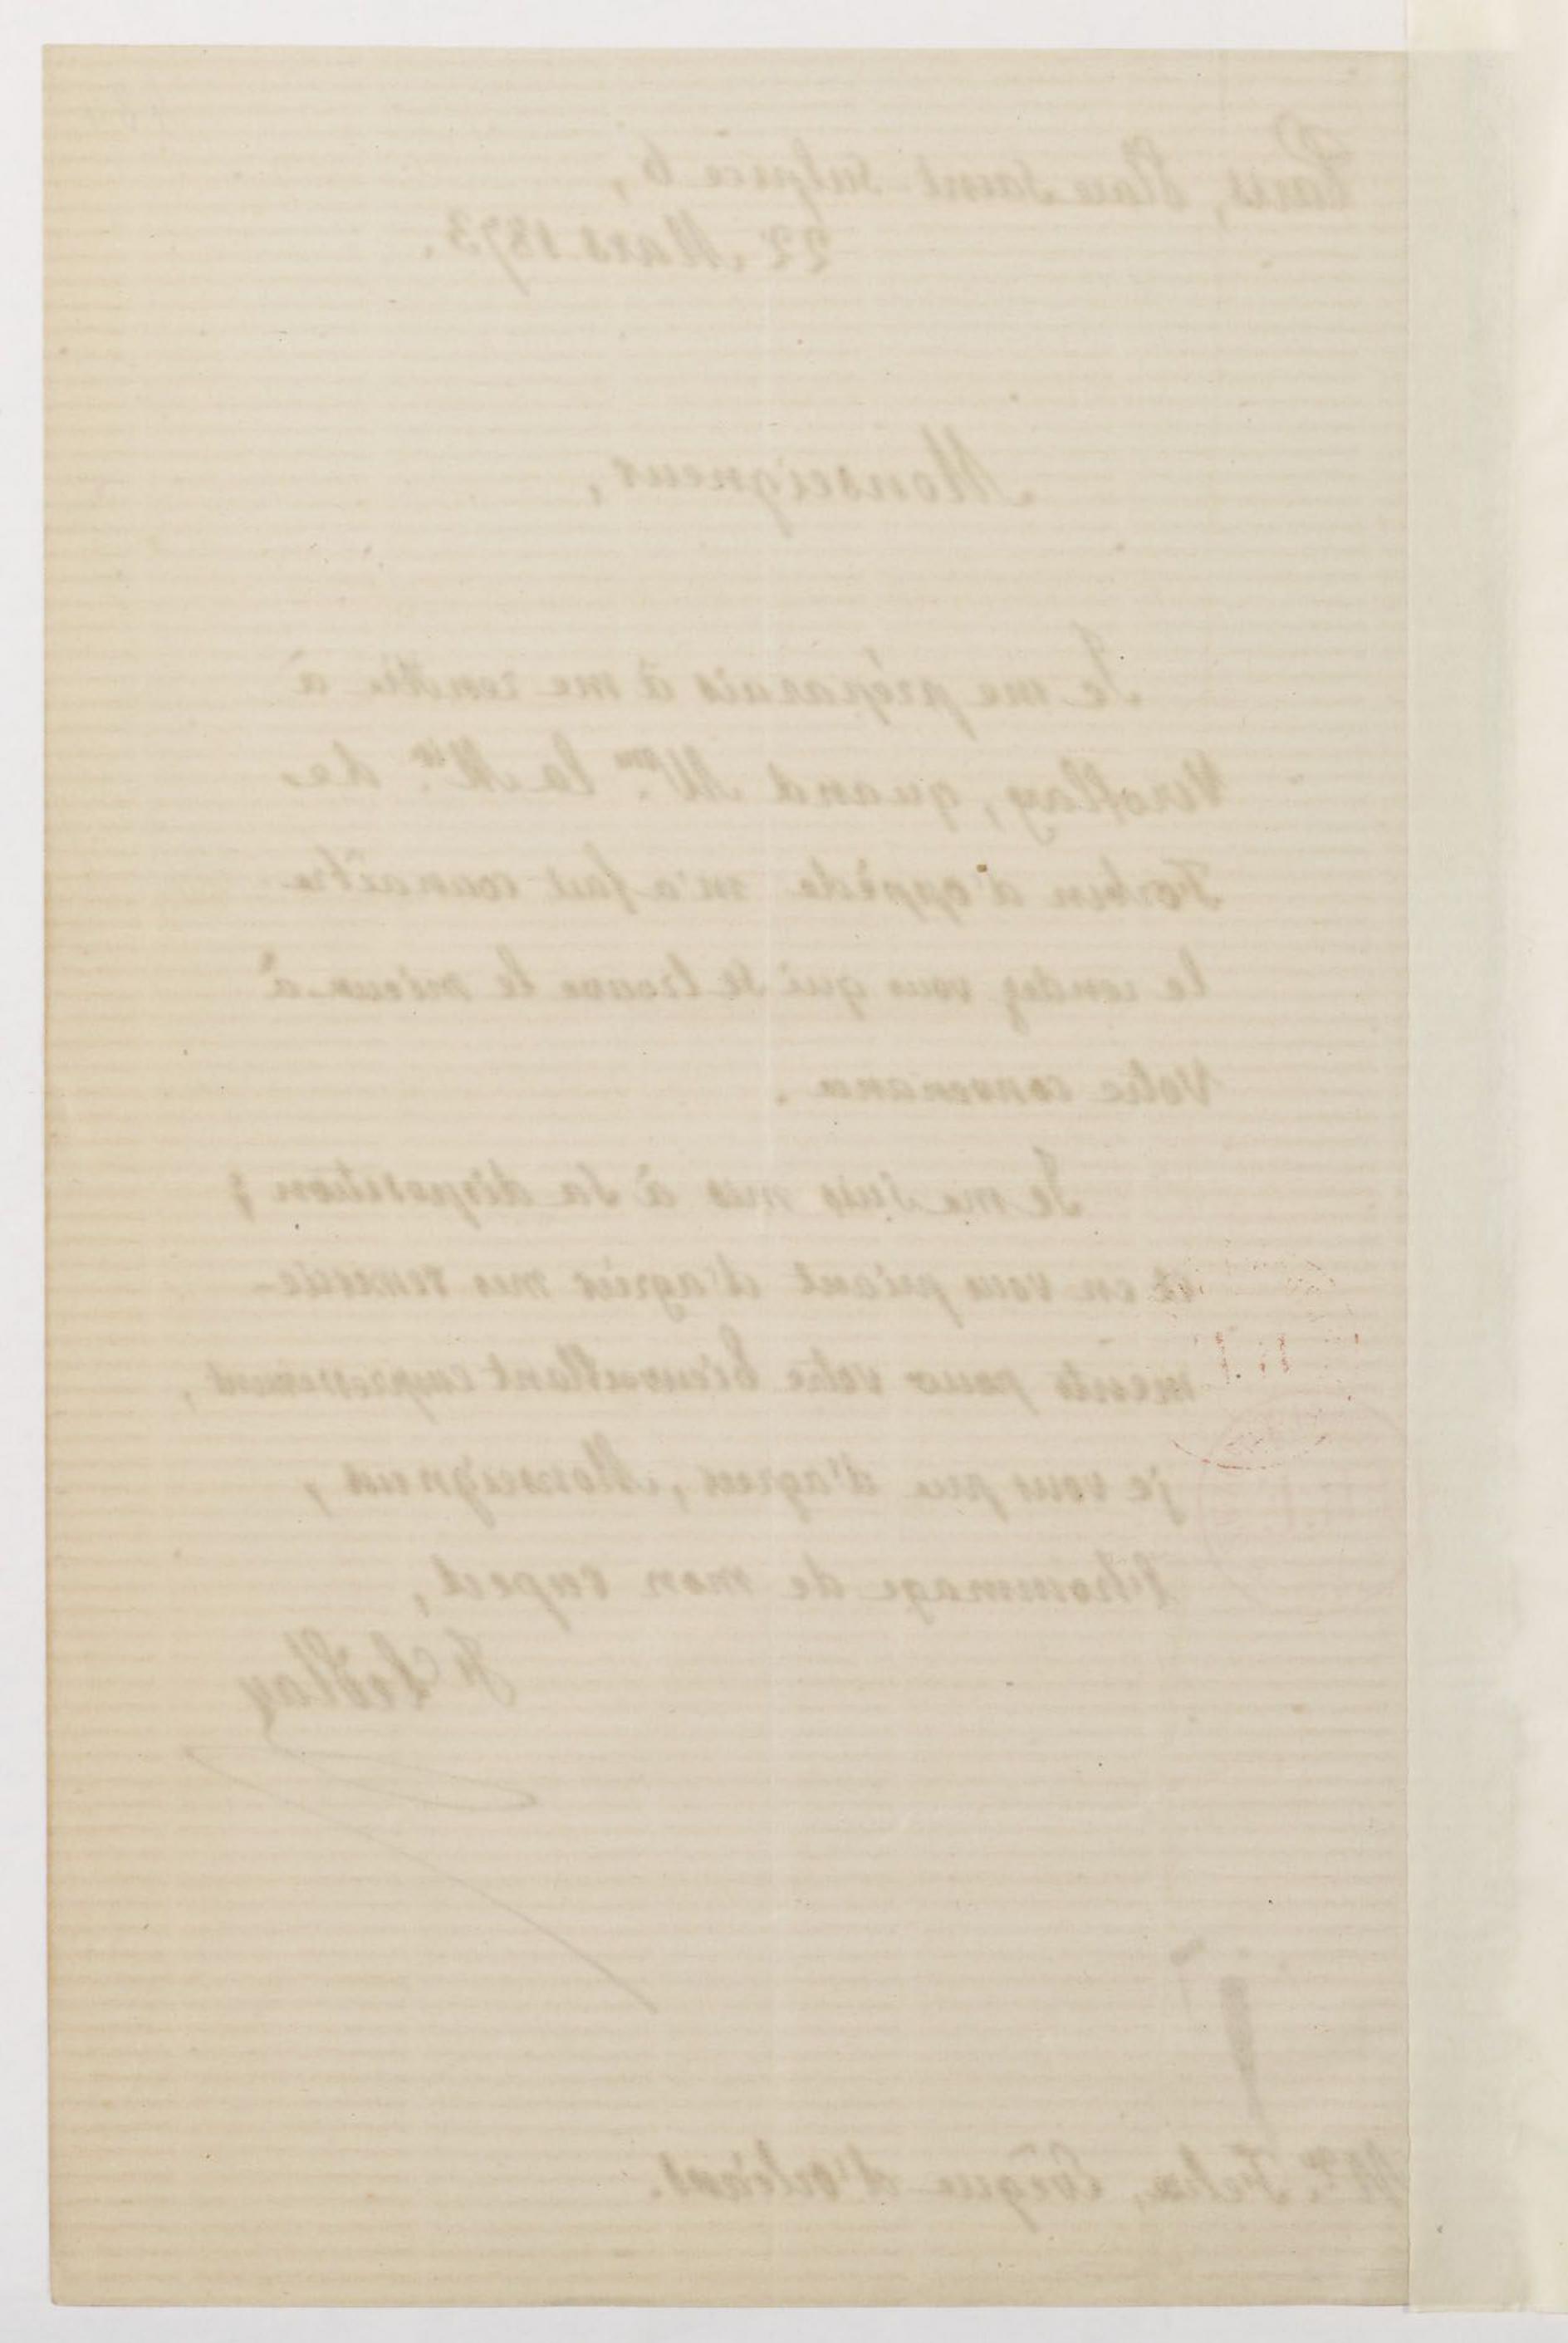 Paris, Place Saint Sulpice 6,
22 Mars 1873.
Monseigneur,
Je me préparais à me rendre à
Viroflay, quand Mme. la Mise. de
Forbin d'oppède m'a fait connaître
le rendez vous qui se trouve le mieux à
Votre convenance.
Je me suis mis à sa disposition;
et en vous priant d'agréer mes remercie-
ments pour votre bienveillant empressement,
je vous prie d'agréer, Monseigneur,
l'hommage de mon respect,
F. LePlay
Mgr. Felix, Evêque d'orléans.